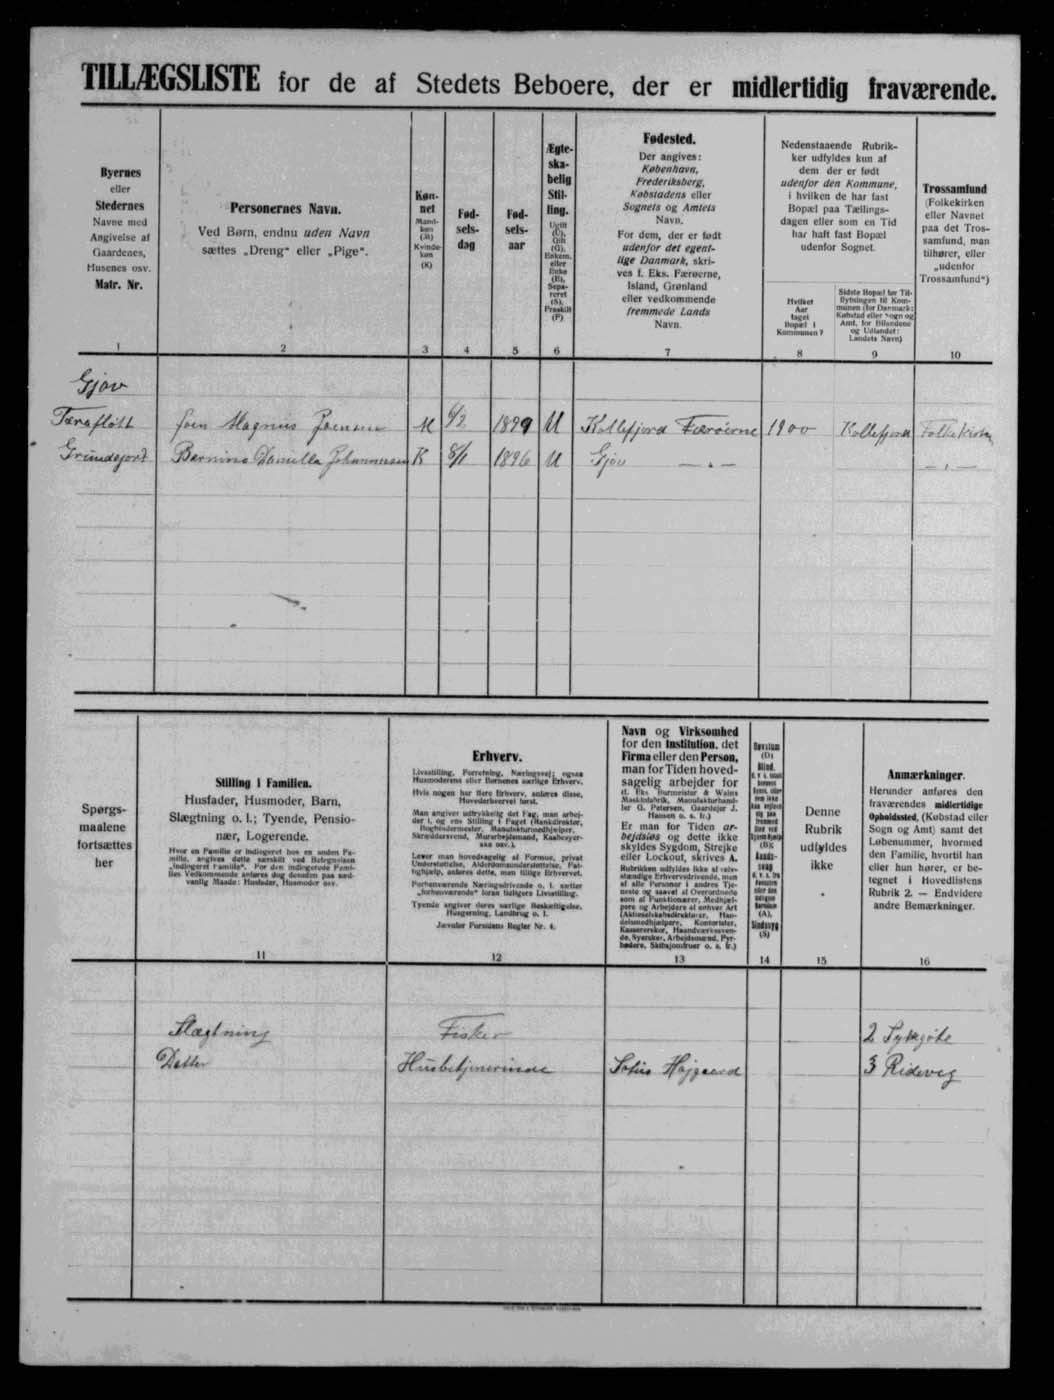 TILLÆGSLISTE for de af Stedets Beboere, der er midlertidig fraværende.
Byernes
eller
Stedernes
Navne med
Angivelse af
Gaardenes,
Husenes osv.
Matr. Nr.
1
Personernes Navn.
Ved Børn, endnu uden Navn
sættes „Dreng“ eller „Pige“.
2
Køn-
net
Mand-
køn
(M)
Kvinde-
køn
(K)
3
Fød-
sels-
dag
4
Fød-
sels-
aar
5
Ægte-
ska-
belig
Stil-
ling.
Ugift
(U),
Gift
(G),
Enkem.
eller
Enke
(E),
Sepa-
reret
(S),
Fraskilt
(F)
6
Fødested.
Der angives:
København,
Frederiksberg,
Købstadens eller
Sognets og Amtets
Navn.
For dem, der er født
udenfor det egent-
lige Danmark, skri-
ves f. Eks. Færøerne,
Island, Grønland
eller vedkommende
fremmede Lands
Navn.
7
Nedenstaaende Rubrik-
ker udfyldes kun af
dem der er født
udenfor den Kommune,
i hvilken de har fast
Bopæl paa Tællings-
dagen eller som en Tid
har haft fast Bopæl
udenfor Sognet.
Hvilket
Aar
taget
Bopæl i
Kommunen?
8
Sidste Bopæl før Til-
flytningen til Kom-
munen (for Danmark:
Købstad eller Sogn og
Amt, for Bilandene
og Udlandet:
Landets Navn)
9
Trossamfund
(Folkekirken
eller Navnet
paa det Tros-
samfund, man
tilhører, eller
„udenfor
Trossamfund“)
10
Gjov
Joen Magnus Joensen M 6/2 1899 U Kollefjord Færøerne 1900 Kollefjord Folkekirken
Daniella Johannesen K 8/1 1896 U Gjov — „ — — „ —
Spørgs-
maalene
fortsættes
her
Stilling i Familien.
Husfader, Husmoder, Barn,
Slægtning o. l.; Tyende, Pensio-
nær, Logerende.
Hvor en Familie er indlogeret hos en anden Fa-
milie, angives dette særskilt ved Betegnelsen
„indlogeret Familie“. For den indlogerede Fami-
lies Vedkommende anføres dog desuden paa sæd-
vanlig Maade: Husfader, Husmoder osv.
11
Erhverv.
Livsstilling, Forretning, Næringsvej; ogsaa
Husmoderens eller Børnenes særlige Erhverv.
Hvis nogen har flere Erhverv, anføres disse,
Hovederhvervet først.
Man angiver udtrykkelig det Fag, man arbej-
der i, og ens Stilling i Faget (Bankdirektør,
Bogbindermester, Manufakturmedhjælper,
Skræddersvend, Murarbejdsmand, Kasbesyer-
ske osv.).
Lever man hovedsagelig af Formue, privat
Understøttelse, Alderdomsunderstøttelse, Fat-
tighjælp, anføres dette, men tillige Erhvervet.
Forhenværende Næringsdrivende o. l. sætter
„forhenværende“ foran tidligere Livsstilling.
Tyende angiver deres særlige Beskæftigelse,
Husgerning, Landbrug o. l.
Jævnfør Forsidens Regler Nr. 4.
12
Navn og Virksomhed
for den Institution, det
Firma eller den Person,
man for Tiden hoved-
sagelig arbejder for
(f. Eks. Burmeister & Wains
Maskinfabrik, Manufakturhand-
ler G. Petersen, Gaardejer J.
Hansen o. s. fr.)
Er man for Tiden ar-
bejdsløs og dette ikke
skyldes Sygdom, Strejke
eller Lockout, skrives A.
Rubrikken udfyldes ikke af selv-
stændige Erhvervsdrivende, men
af alle Personer i andres Tje-
neste og saavel af Overordnede
som af Funktionærer, Medhjæl-
pere og Arbejdere af enhver Art
(Aktieselskabsdirektører, Han-
delsmedhjælpere, Kontorister,
Kassererskor, Haandværkssven-
de, Syersker, Arbejdsmænd, Fyr-
bødere, Skibsjomfruer o. s. fr.)
13
Døvstum
(D)
Blind,
(B);
(A),
Sindssyg
(S)
14
Denne
Rubrik
udfyldes
ikke
15
Anmærkninger.
Herunder anføres den
fraværendes midlertidige
Opholdssted, (Købstad eller
Sogn og Amt) samt det
Løbenummer, hvormed
den Familie, hvortil han
eller hun hører, er be-
tegnet i Hovedlistens
Rubrik 2. — Endvidere
andre Bemærkninger.
16
Slægtning Fisker 2
Datter Husbetjenerinde Højgaard 3 Rideveg